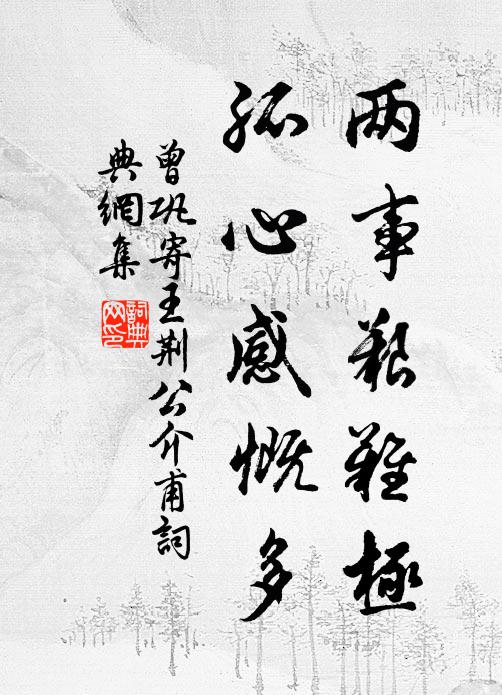 两事艰難極
孤心感慨多
曾巩寄王荆公介甫詞
典網集
詞典
网印